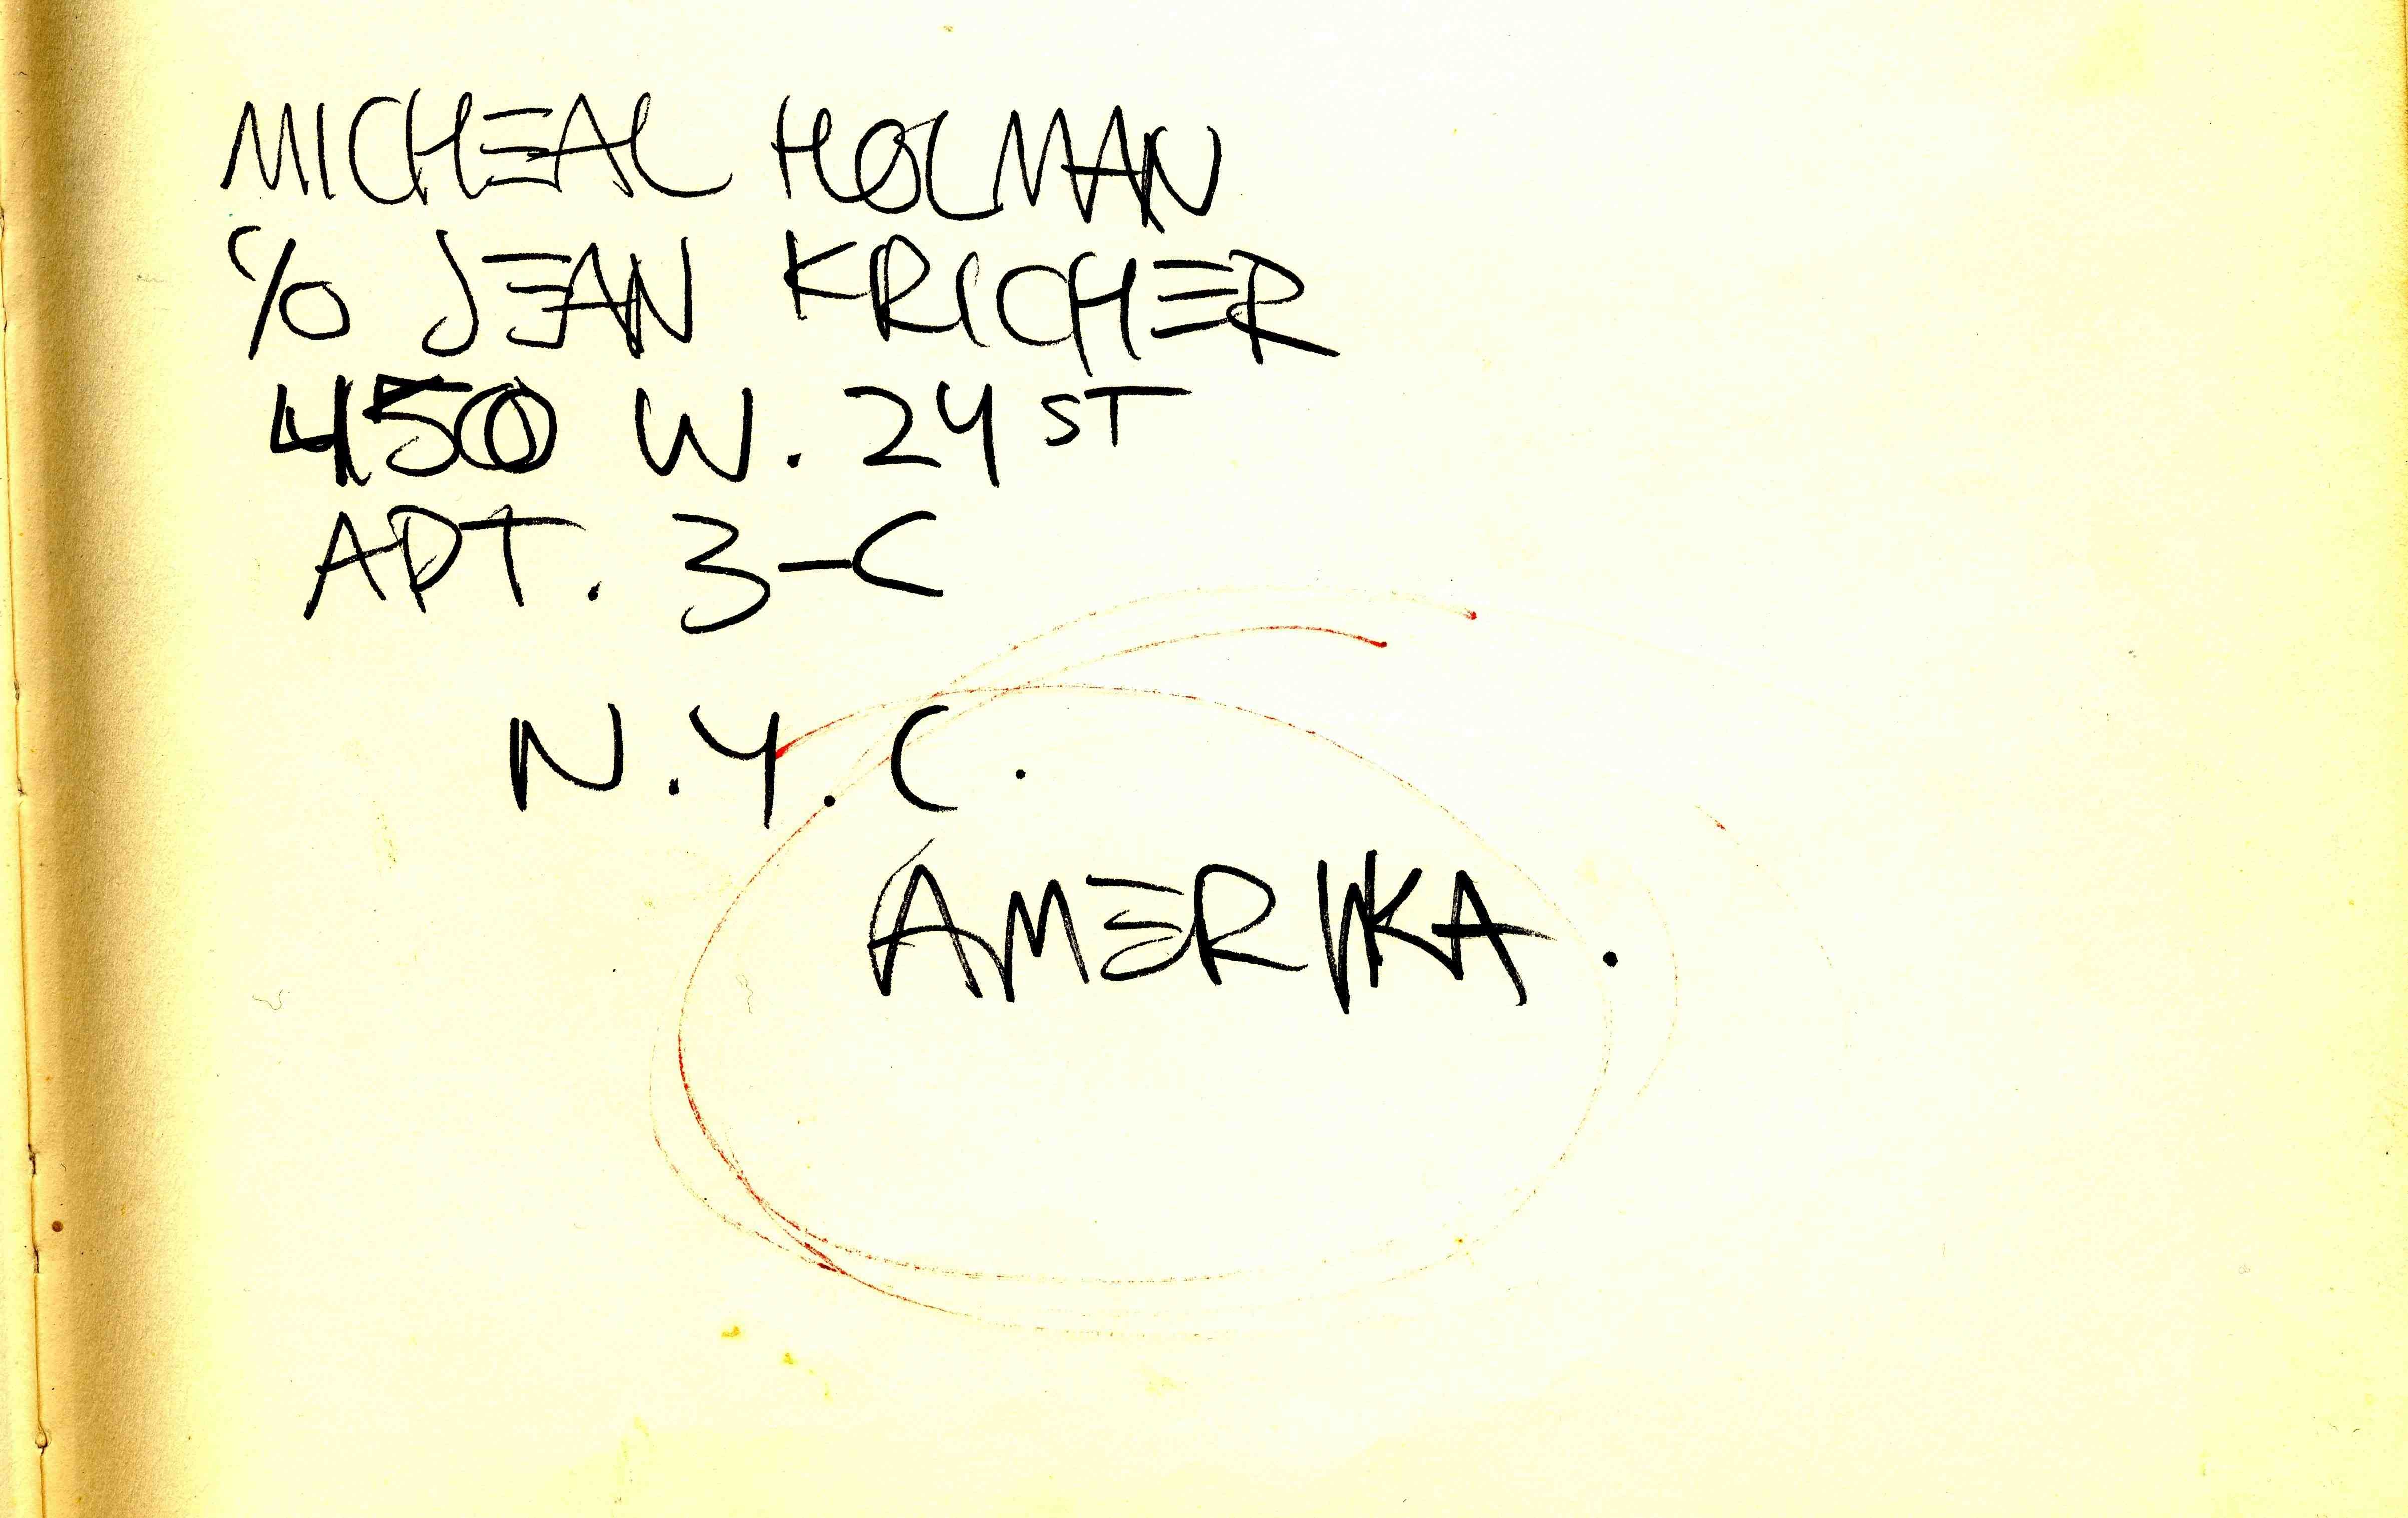 MICHEAL HOLMAN
% JEAN KRICHER
450 W. 24 ST
APT. 3-C
N.Y.C.
AMERIKA.